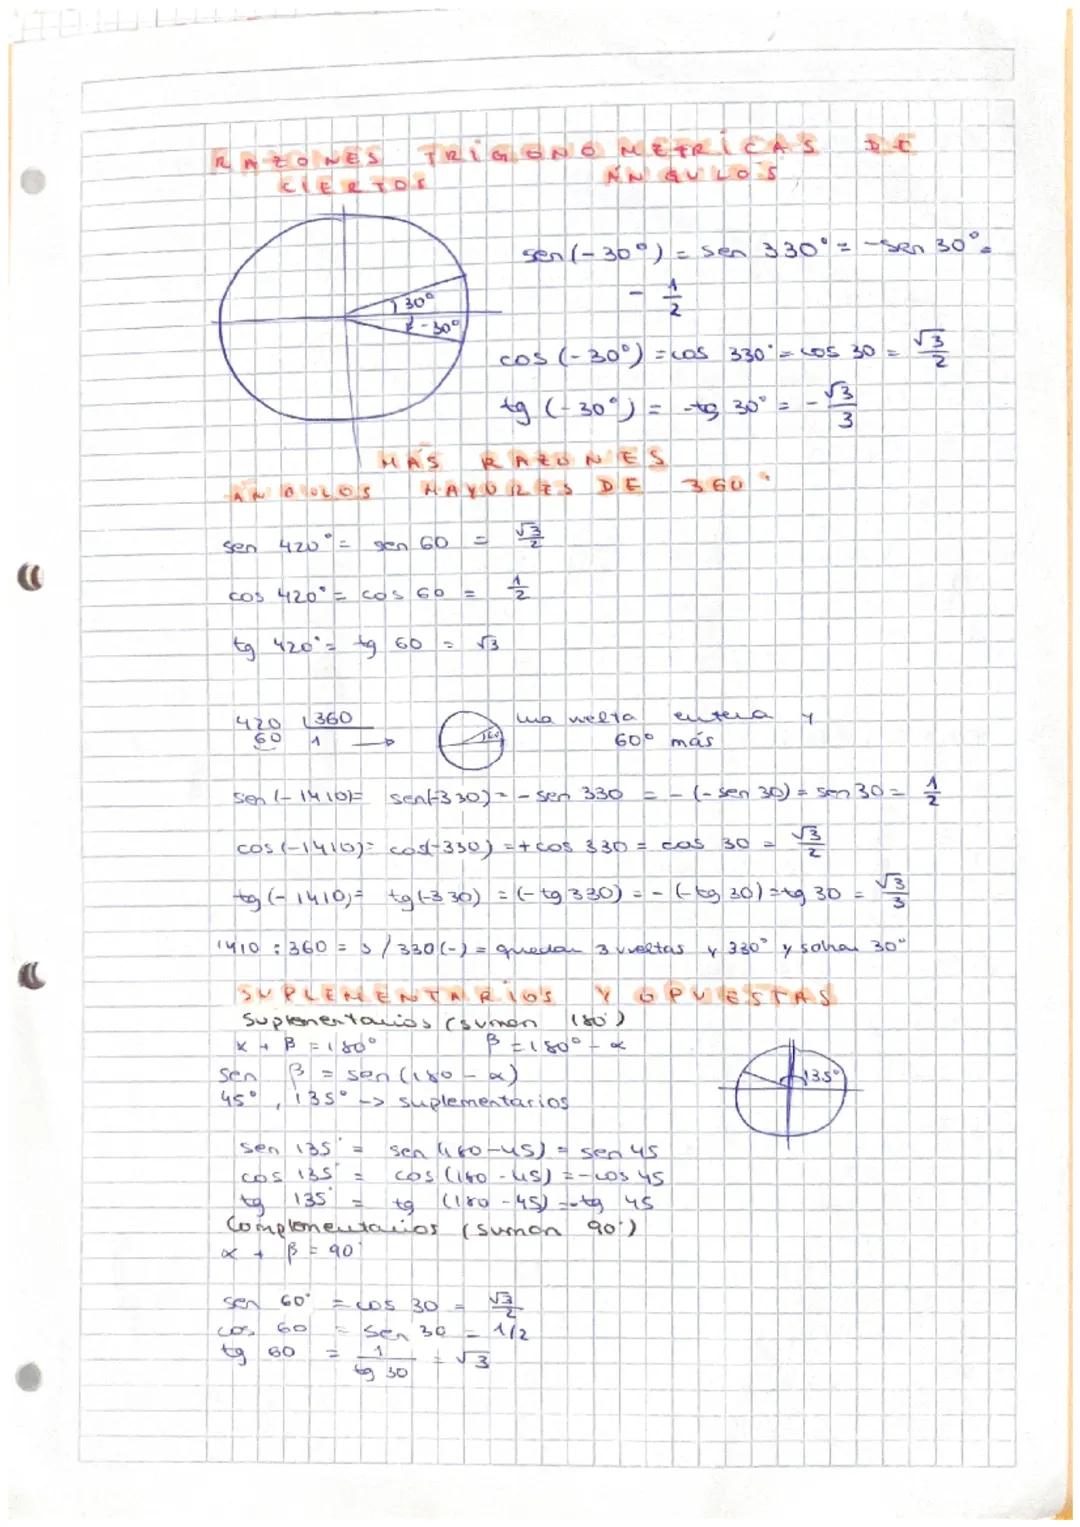 RAZONES TRIGONOMÉTRICAS DE
CIERTOS ÁNGULOS
30°
-30°
sen(-30°) = sen 330° = -sen 30° =
- 1/2
cos (-30°) = cos 330° = cos 30 = √3/2
tg (-30°) = -tg 30° = - √3/3
MÁS RAZONES
ÁNGULOS MAYORES DE 360°
sen 420° = sen 60 = √3/2
cos 420° = cos 60 = 1/2
tg 420° = tg 60 = √3
420 | 360
60 1 →
60
una vuelta entera y
60° más
sen (-1410) = sen(-330) = -sen 330 = -(-sen 30) = sen 30 = 1/2
cos (-1410) = cos(-330) = + cos 330 = cos 30 = √3/2
tg (-1410) = tg (-330) = (-tg 330) = -(-tg 30) = tg 30 = √3/3
1410 : 360 = 3 / 330 (-) = quedan 3 vueltas y 330° y sobran 30°
SUPLEMENTARIOS Y OPUESTAS
Suplementarios (sumen 180°)
α + β = 180° β = 180° - α
sen β = sen (180 - α)
45°, 135° -> suplementarios
135°
sen 135° = sen (180-45) = sen 45
cos 135° = cos (180-45) = -cos 45
tg 135° = tg (180-45) = -tg 45
Complementarios (suman 90°)
α + β = 90°
sen 60° = cos 30 = √3/2
cos 60 = sen 30 = 1/2
tg 60 = 1/tg 30 = √3